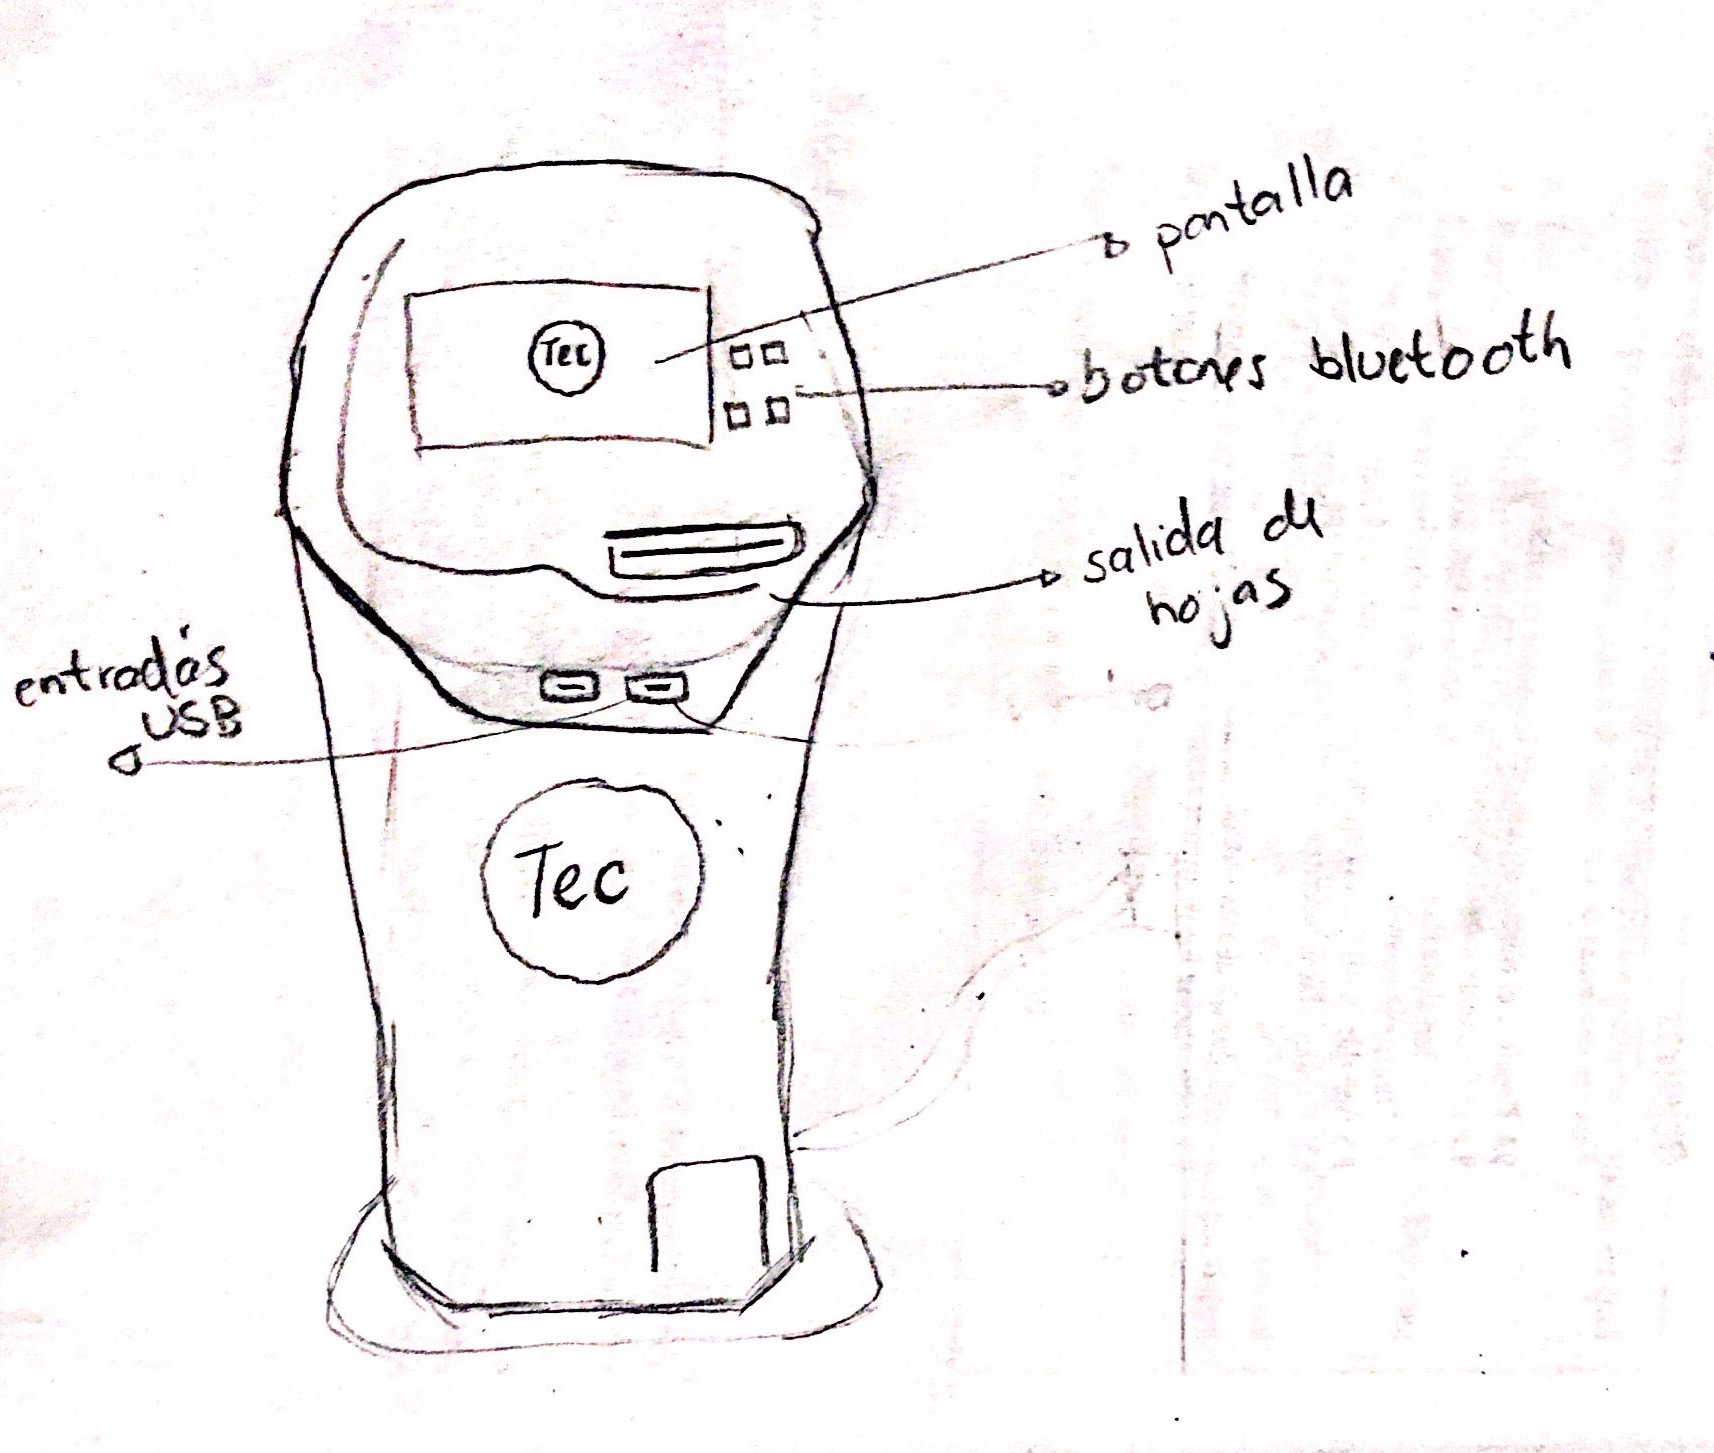 pantalla
Tec
botones bluetooth
salida de
hojas
entradas
USB
Tec